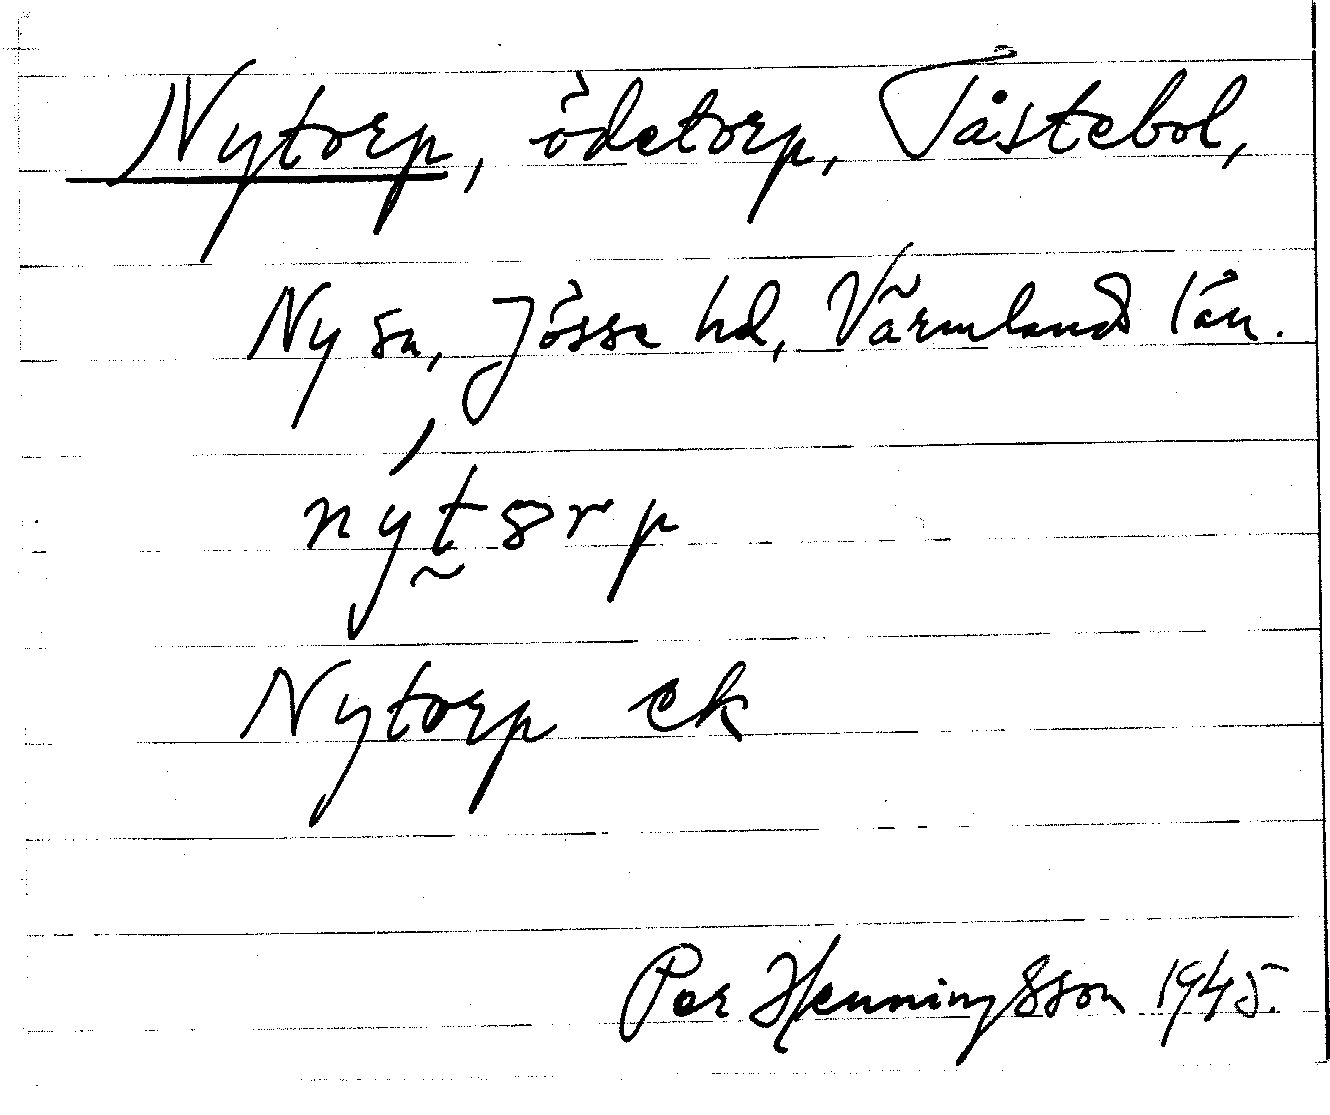 Nytorp, ödetorp, Tåstebol,
Ny sn, Jösse hd, Värmlands län.
Nytorp ek
Per Henningsson 1945.